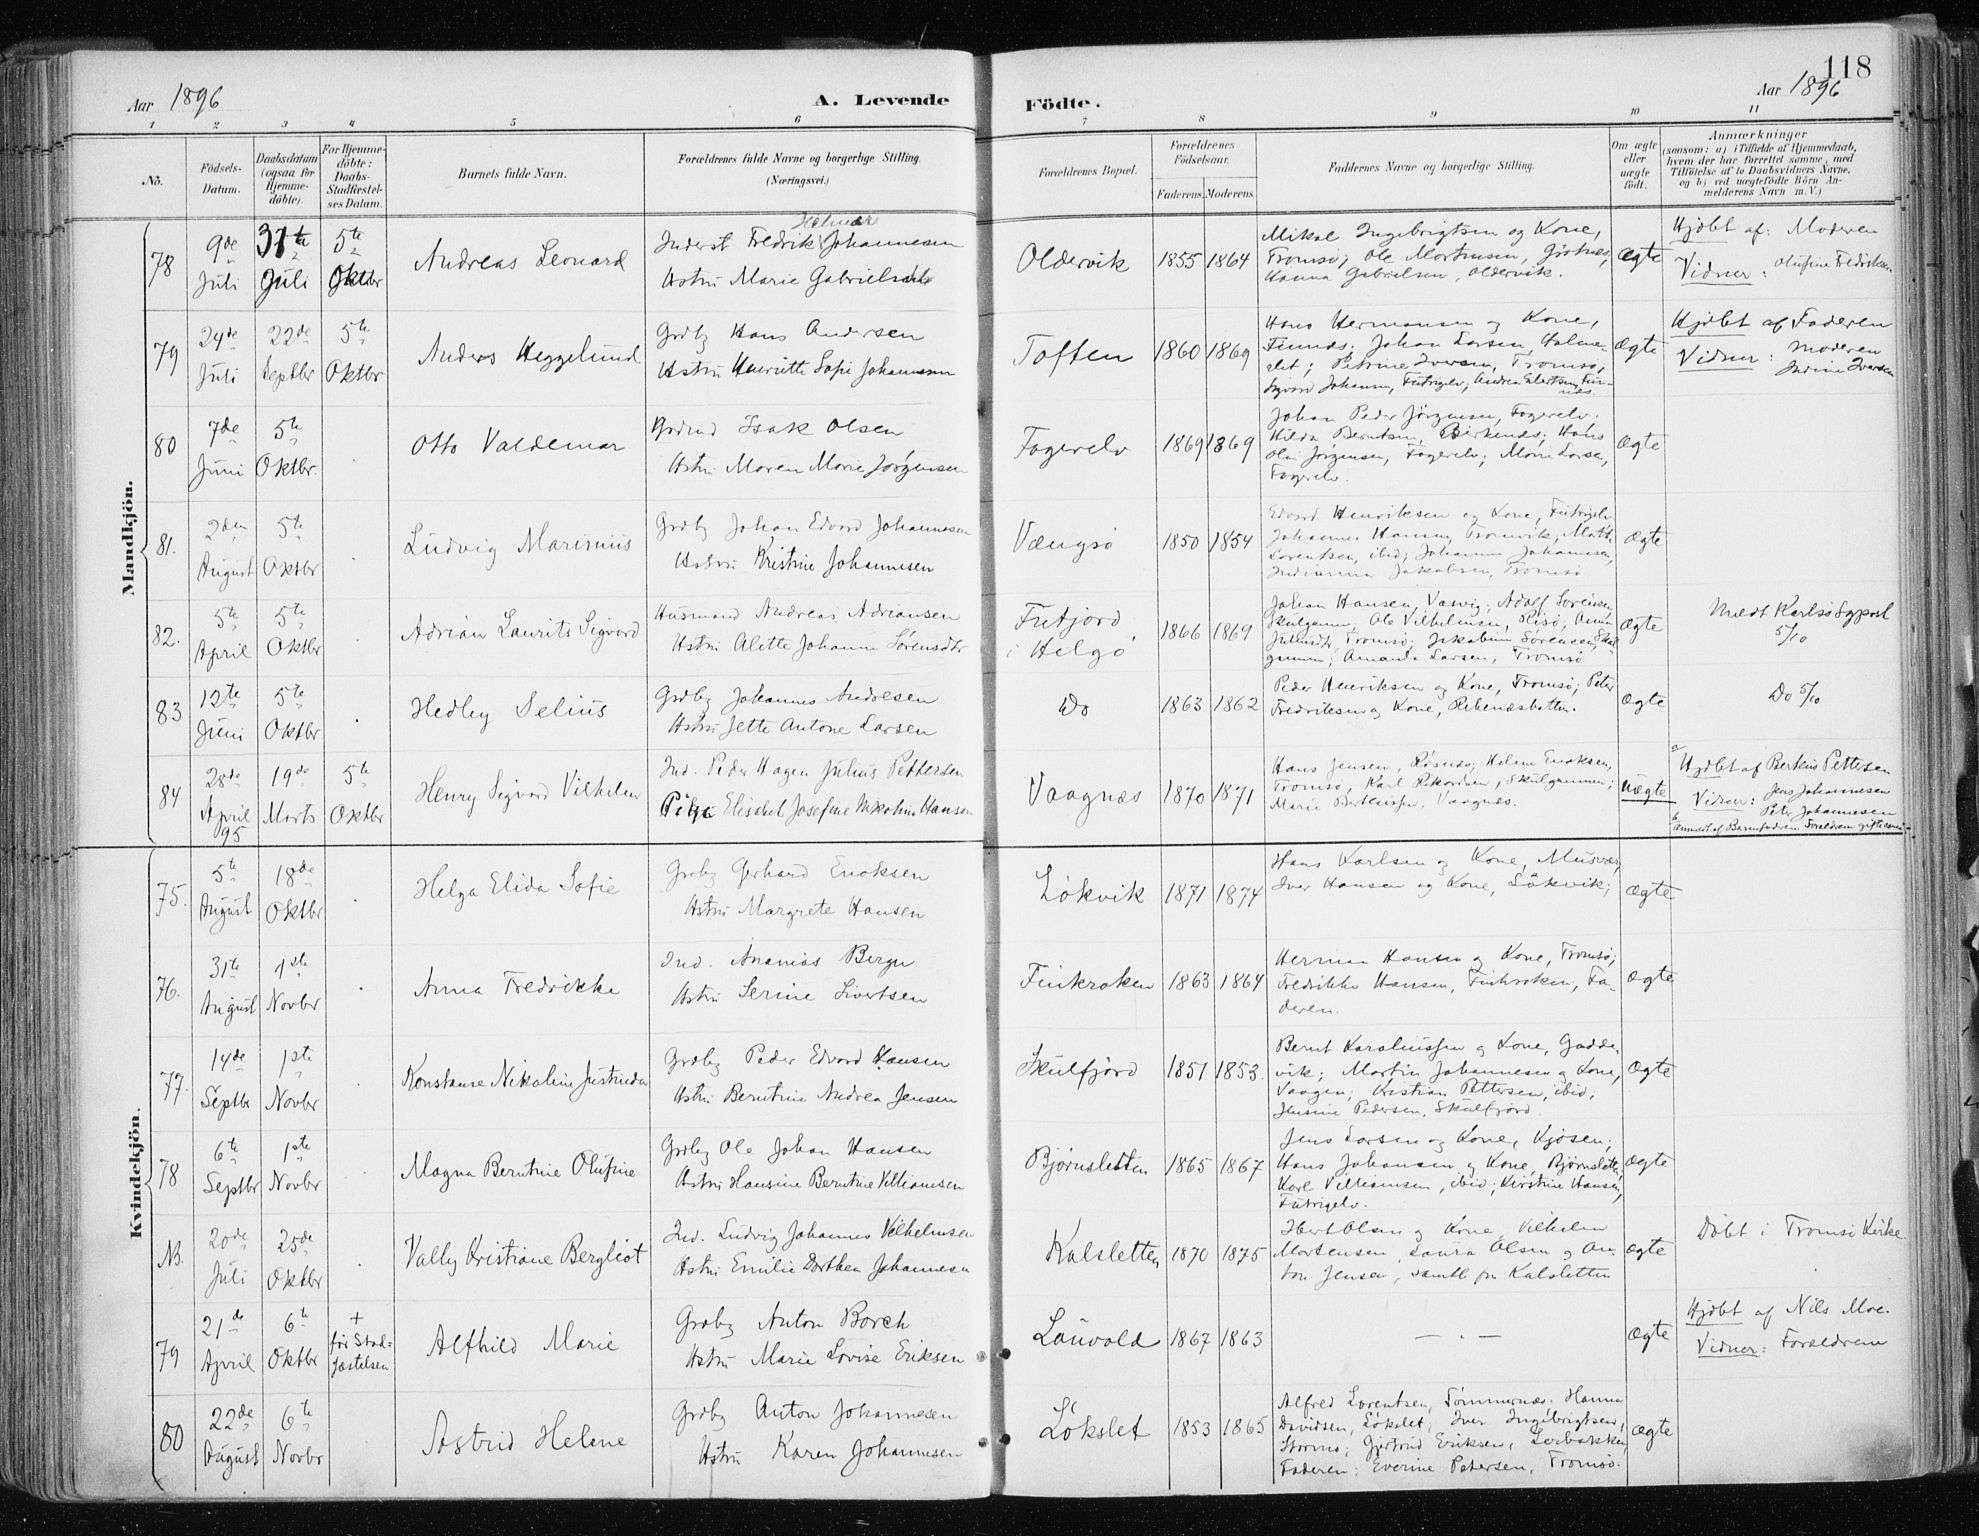 118
Aar 1896
A. Levende
Födte.
Aar 1896
1 2 3 4 5 6 7 8 9 10 11
No.
Födsels-
Datum.
Daabsdatum
(ogsaa for
Hjemme-
döbte).
For Hjemme-
döbte:
Daabs-
Stadfæstel-
ses Datum.
Barnets fulde Navn.
Forældrenes fulde Navne og borgerlige Stilling.
(Næringsvei.)
Forældrenes Bopæl.
Forældrenes
Födselsaar.
Faderens
Moderens
Faddernes Navne og borgerlige Stilling.
Om ægte
eller
uægte
født.
Anmærkninger
(saasom: a) i Tilfælde af Hjemmedaab,
hvem der har forrettet samme, med
Tilföielse af to Daabsvidners Navne,
og b) ved uægtefödte Börn An-
melderens Navn m. V.)
Mandkjön.
78
9de Juli
31te Juli
5te Oktbr
Andreas Leonard
Helmer
Inderst Fredrik Johannesen
Hstru Marie Gabrielsdtr
Oldervik
1855
1864
Mikal Ingebrigtsen og Kone,
Tromsø; Ole Mortensen,
Hanna Gabrielsen, Oldervik.
Ægte
Hjdbt af: Moderen
Vidner: Olufine Fredriksen
79
24de Juli
22de Septbr
5te Oktbr
Anders Heggelund
Grdbg Hans Andersen
Hstru Henriette Sofie Johannesen
Toften
1860
1869
Hans Hermansen og Kone,
Finnæs; Johan Larsen,
Petrine Iversen, Tromsø,
Sigvard Johansen, Futrigelv; Andrea
Ægte
Hjdbt af Faderen
Vidner: Moderen
Indine Iversen
80
7de Juni
5te Oktbr.
Otto Valdemar
Isak Olsen
Hstru Maren Marie Jørgensen
Fagerelv
1869
1869
Johan Peder Jørgensen, Fagerelv.
Hilda Berntsen, Birkenæs; Hans
Olai Jørgensen, Fagerelv; Marie Larsen,
Fagerelv.
Ægte
81.
2den August
5te Oktbr
Ludvig Marinius
Grdbg Johan Edvard Johannesen
Hstru Kristine Johannesen
Vængsø
1850
1854
Edvard Henriksen og Kone, Futrigelv
Johannes Hansen, Tromvik,
Lorentsen, ibid; Johanna Johannesen,
Indianna Jakobsen, Tromsø
Ægte
82.
5te April
5te Oktbr
Adrian Laurits Sigvard
Husmand Andreas Adriansen
Hstru Alette Johanna Sørensdtr
i Helgø
1866
1869
Johan Hansen, Vasvig, Adolf Sørensen,
Skulgammen; Ole Vilhelmsen, Risø; Anna
Tromsø; Jakobine Sørensen, Skul-
gammen; Amanda Larsen, Tromsø
Ægte
5/10
83
12te Juni
5te Oktbr
Hedley Delius
Grdbg Johannes Andresen
Hstru Jette Antone Larsen
Do
1863
1862
Peder Henriksen og Kone, Tromsø; Peter
Fredriksen og Kone, Rebenæsbotten.
Ægte
Do 5/10
84
28de April 95
19de Marts
5te Oktober
Henry Sigvard Vilhelm
Ind. Peder Hagen Julius Pettersen
Pige Elisabet Josefine Nikoline Hansen
Vaagnæs
1870
1871
Hans Jensen, Helene Enoksen,
Tromsø, Karl Rikardsen, Skulgammen;
Marie Vaagnæs.
Uægte
a Hjdbt af Berkus Pettersen
Vidner: Jens Johannesen
Peter Johannesen
b Anmeldt af Barnefaderen
Kvindekjön.
75.
5te August
18de Oktbr
Helga Elida Sofie
Grdbg Gerhard Enoksen
Hstru Margrete Hansen
Løkvik
1871
1874
Hans Karlsen og Kone, Musvær,
Iver Hansen og Kone, Løkvik;
Ægte
76.
31te August
1ste Novbr
Anna Fredrikke
Ind. Ananias Berger
Hstru Serine Sivertsen
Finkroken
1863
1864
Herman Hansen og Kone, Tromsø;
Fredrikke Hansen, Finkroken, Fa-
deren.
Ægte
77.
14de Septbr
1ste Novbr
Konstanse Nikoline Justinda
Grdbg Peder Edvard Hansen
Hstru Berntine Andrea Jensen
Skulfjord
1851
1853.
Bernt Karoliussen og Kone, Gadde-
vik; Martin Johannesen og Kone,
Vaagen; Kristian Pettersen, ibid;
Jensine Pedersen, Skulfjord.
Ægte
78
6te Septbr
1ste Novbr
Magna Berntine Olufine
Grdbg Ole Johan Hansen
Hstru Hansine Berntine Villiamsen
Bjørnsletten
1865
1867
Jens Larsen og Kone, Kjosen;
Hans Johansen og Kone, Bjørnsletten,
Karl Villiamsen, ibid; Kirstine Hansen,
Futrigelv.
Ægte
N.B.
20de Juli
25de Oktbr
Vally Kristiane Bergliot
Ind. Ludvig Johannes Vilhelmsen
Hstru Emilie Dorthea Johannesen
Kalsletten
1870
1875
Olsen og Kone, Vilhelm
Mortensen, Laura Olsen og An-
ton Jensen, samtl fra Kalsletten
Ægte
Døbt i Tromsø Kirke
79
21de April
6te Oktbr
+
før Stad-
fæstelsen
Alfhild Marie
Grdbg Anton Borch
Hstru Marie Lovise Eriksen
Lauvold
1867
1863
— . —
Ægte
Hjdbt af Nils Moe.
Vidner: Forældrene
80
22de August
6te Novbr
Astrid Helene
Grdbg Anton Johannesen
Hstru Karen Johannesen
Løkslet
1853
1865
Alfred Lorentsen, Tømmernæs. Hanna
Davidsen, Løkslet; Iver Ingebrigtsen,
Stormo; Gjertrud Eriksen, Lerbakken
Faderen; Everine Petersen, Tromsø.
Ægte